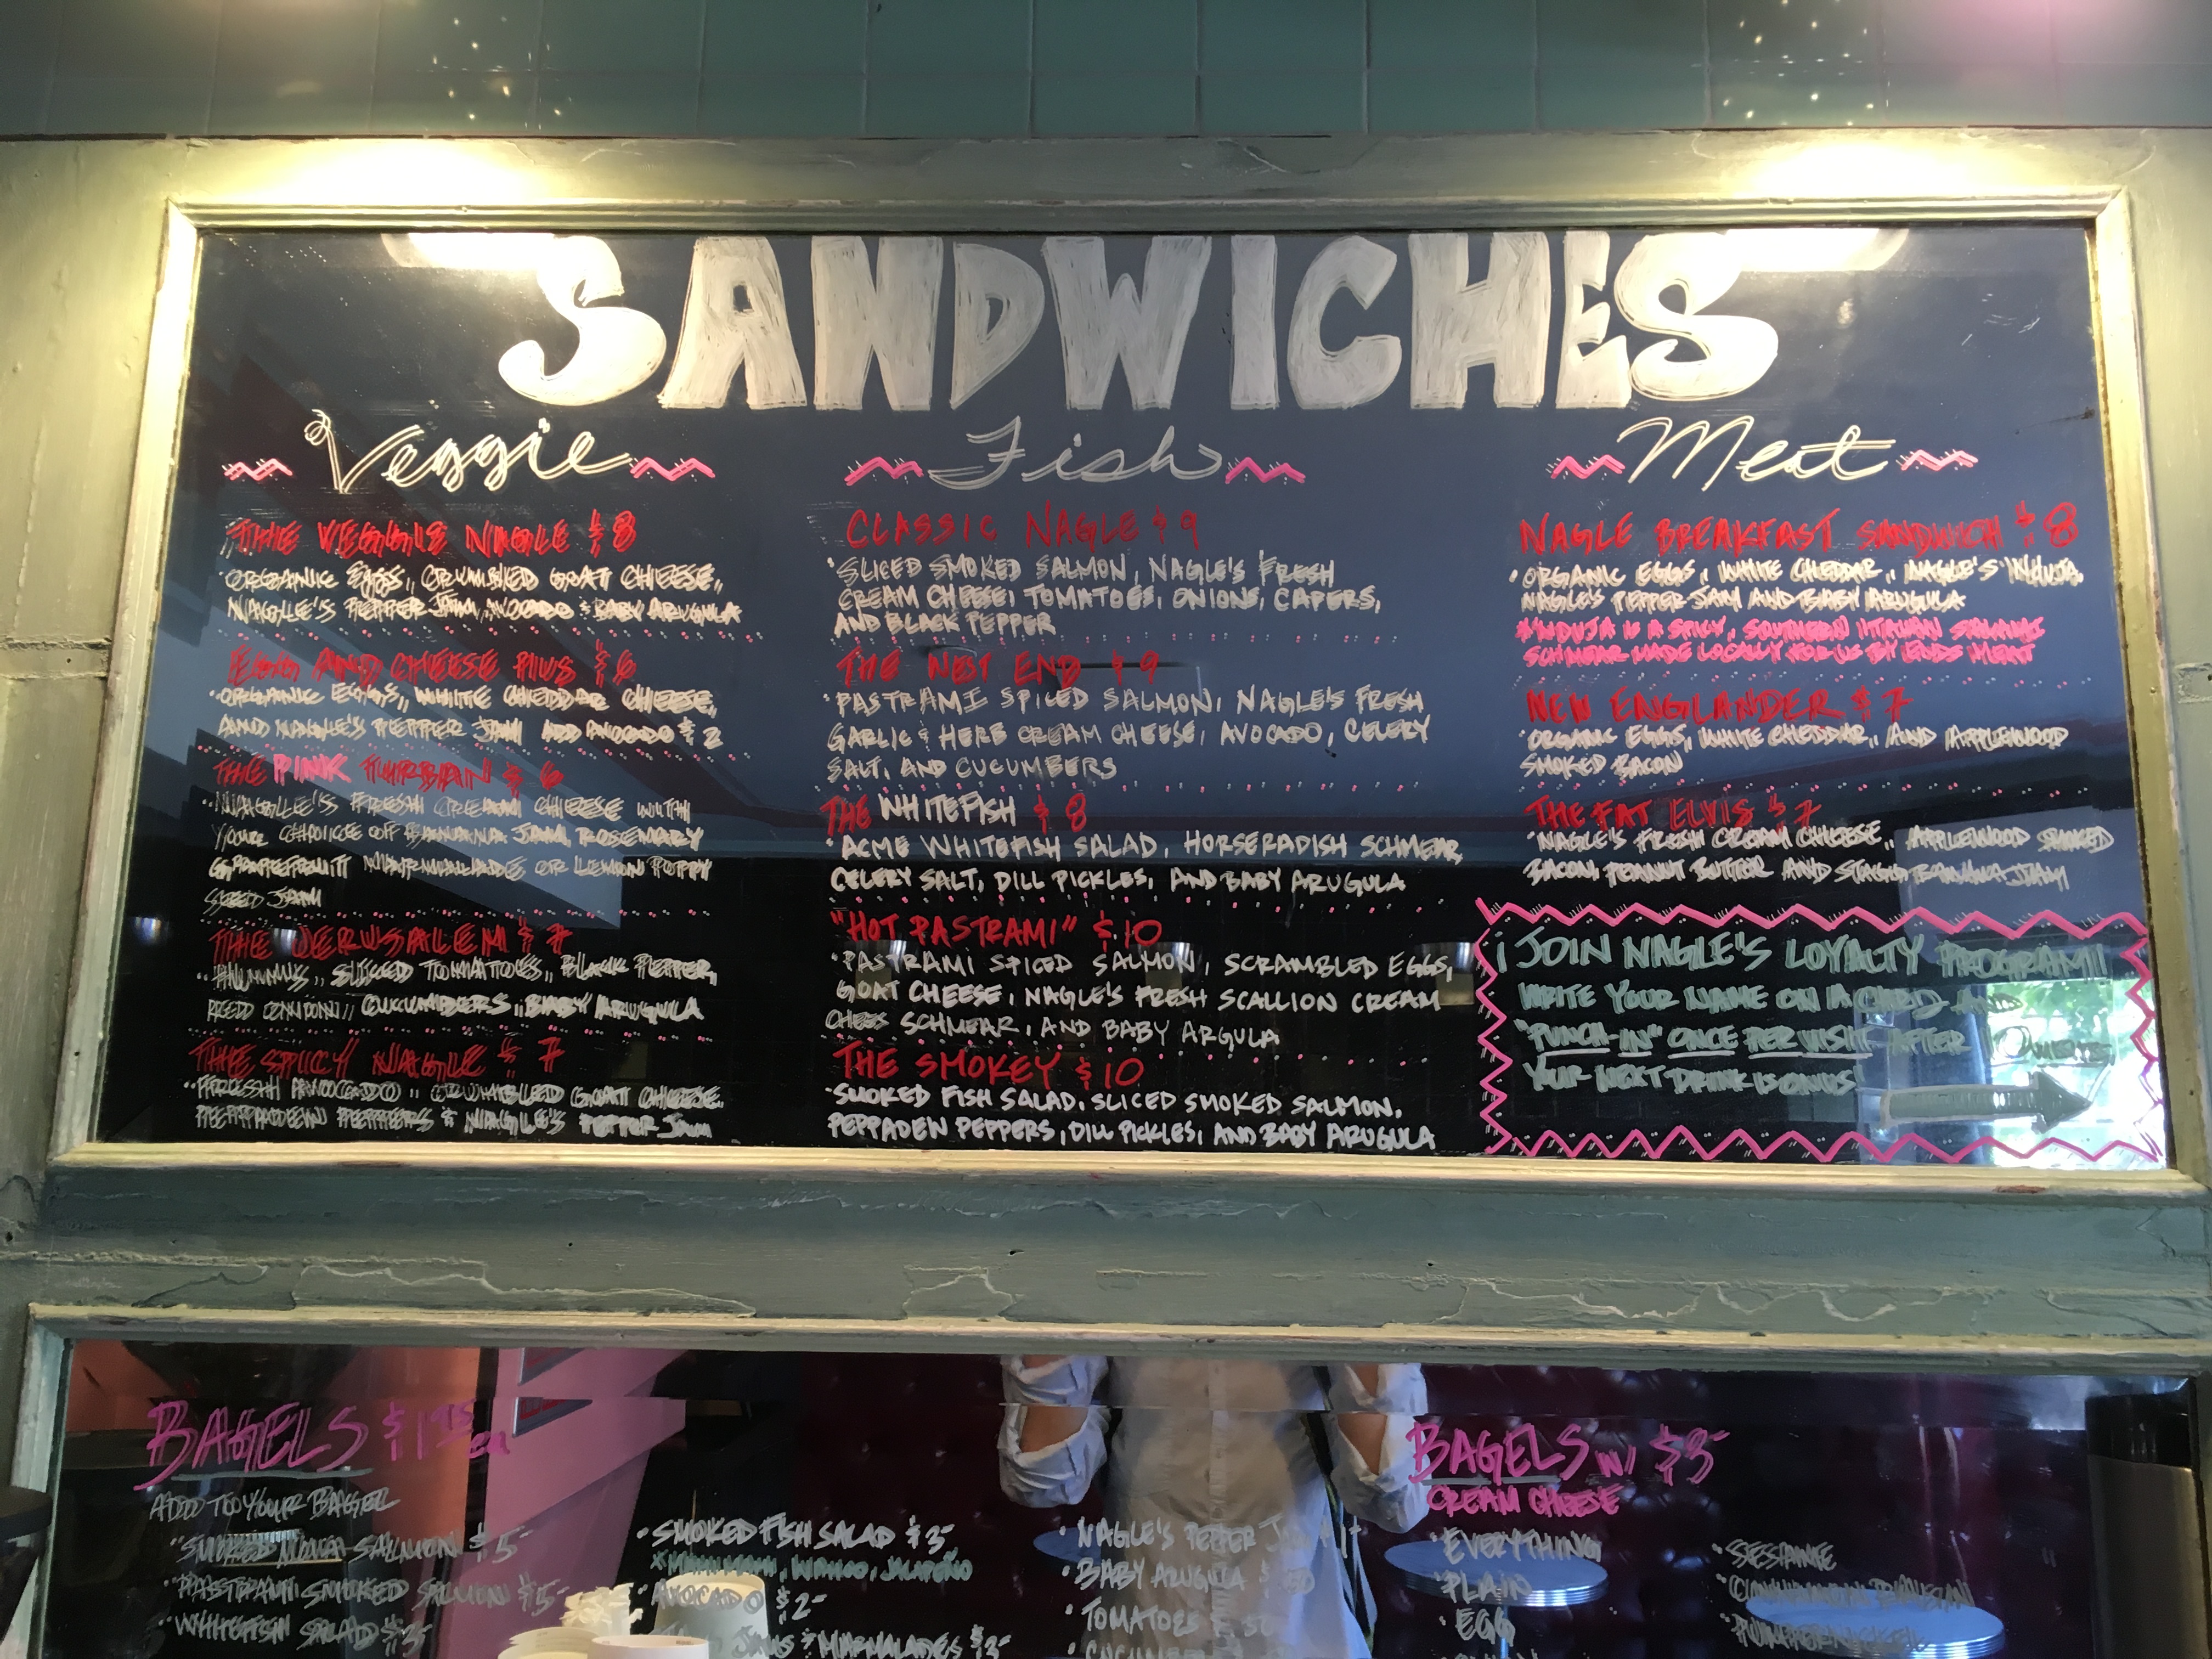 SANDWICHES
Veggie
THE VEGGIE NAGLE $8
·ORGANIC EGGS, CRUMBLED GOAT CHEESE,
NAGLE'S PEPPER JAM, AVOCADO & BABY ARUGULA
EGG AND CHEESE PLUS $6
·ORGANIC EGGS, WHITE CHEDDAR CHEESE,
AND NAGLE'S PEPPER JAM ADD AVOCADO $2
THE PINK TURBAN $6
·NAGLE'S FRESH CREAM CHEESE WITH
YOUR CHOICE OF BANANA JAM, ROSEMARY
GRAPEFRUIT MARMALADE OR LEMON POPPY
SEED JAM
THE JERUSALEM $7
·HUMMUS, SLICED TOMATOES, BLACK PEPPER,
RED ONION, CUCUMBERS, BABY ARUGULA
THE SPICY NAGLE $7
·FRESH AVOCADO, CRUMBLED GOAT CHEESE,
PEPPADEW PEPPERS & NAGLE'S PEPPER JAM
Fish
CLASSIC NAGLE $9
·SLICED SMOKED SALMON, NAGLE'S FRESH
CREAM CHEESE, TOMATOES, ONIONS, CAPERS,
AND BLACK PEPPER
THE WEST END $9
·PASTRAMI SPICED SALMON, NAGLE'S FRESH
GARLIC & HERB CREAM CHEESE, AVOCADO, CELERY
SALT, AND CUCUMBERS
THE WHITEFISH $8
·ACME WHITEFISH SALAD, HORSERADISH SCHMEAR,
CELERY SALT, DILL PICKLES, AND BABY ARUGULA
"HOT PASTRAMI" $10
·PASTRAMI SPICED SALMON, SCRAMBLED EGGS,
GOAT CHEESE, NAGLE'S FRESH SCALLION CREAM
CHEES SCHMEAR, AND BABY ARGULA
THE SMOKEY $10
·SMOKED FISH SALAD, SLICED SMOKED SALMON,
PEPPADEN PEPPERS, DILL PICKLES, AND BABY ARUGULA
Meat
NAGLE BREAKFAST SANDWICH $8
·ORGANIC EGGS, WHITE CHEDDAR, NAGLE'S 'NDUJA,
NAGLE'S PEPPER JAM AND BABY ARUGULA
*'NDUJA IS A SPICY, SOUTHERN ITALIAN SALAMI
SCHMEAR MADE LOCALLY FOR US BY ENDS MEAT
NEW ENGLANDER $7
·ORGANIC EGGS, WHITE CHEDDAR, AND APPLEWOOD
SMOKED BACON
THE FAT ELVIS $7
·NAGLE'S FRESH CREAM CHEESE, APPLEWOOD SMOKED
BACON, PEANUT BUTTER AND BANANA JAM
¡JOIN NAGLE'S LOYALTY PROGRAM!!
WRITE YOUR NAME ON A CARD AND
"PUNCH-IN" ONCE PER VISIT AFTER
YOUR NEXT DRINK IS ON US!
BAGELS $1.75 ea
ADD TO YOUR BAGEL
·SMOKED NOVA SALMON $5-
·PASTRAMI SMOKED SALMON $5-
·WHITEFISH SALAD $3-
·SMOKED FISH SALAD $3-
WAHOO, JALAPEÑO
·AVOCADO $2-
JAMS & MARMALADES $2-
·NAGLE'S PEPPER
·BABY ARUGULA
·TOMATOES
·CUCUMBER
BAGELS W/ $3-
CREAM CHEESE
·EVERYTHING
·PLAIN
·EGG
·SESSAME
·CINNAMON RAISIN
·PUMPERNICKEL